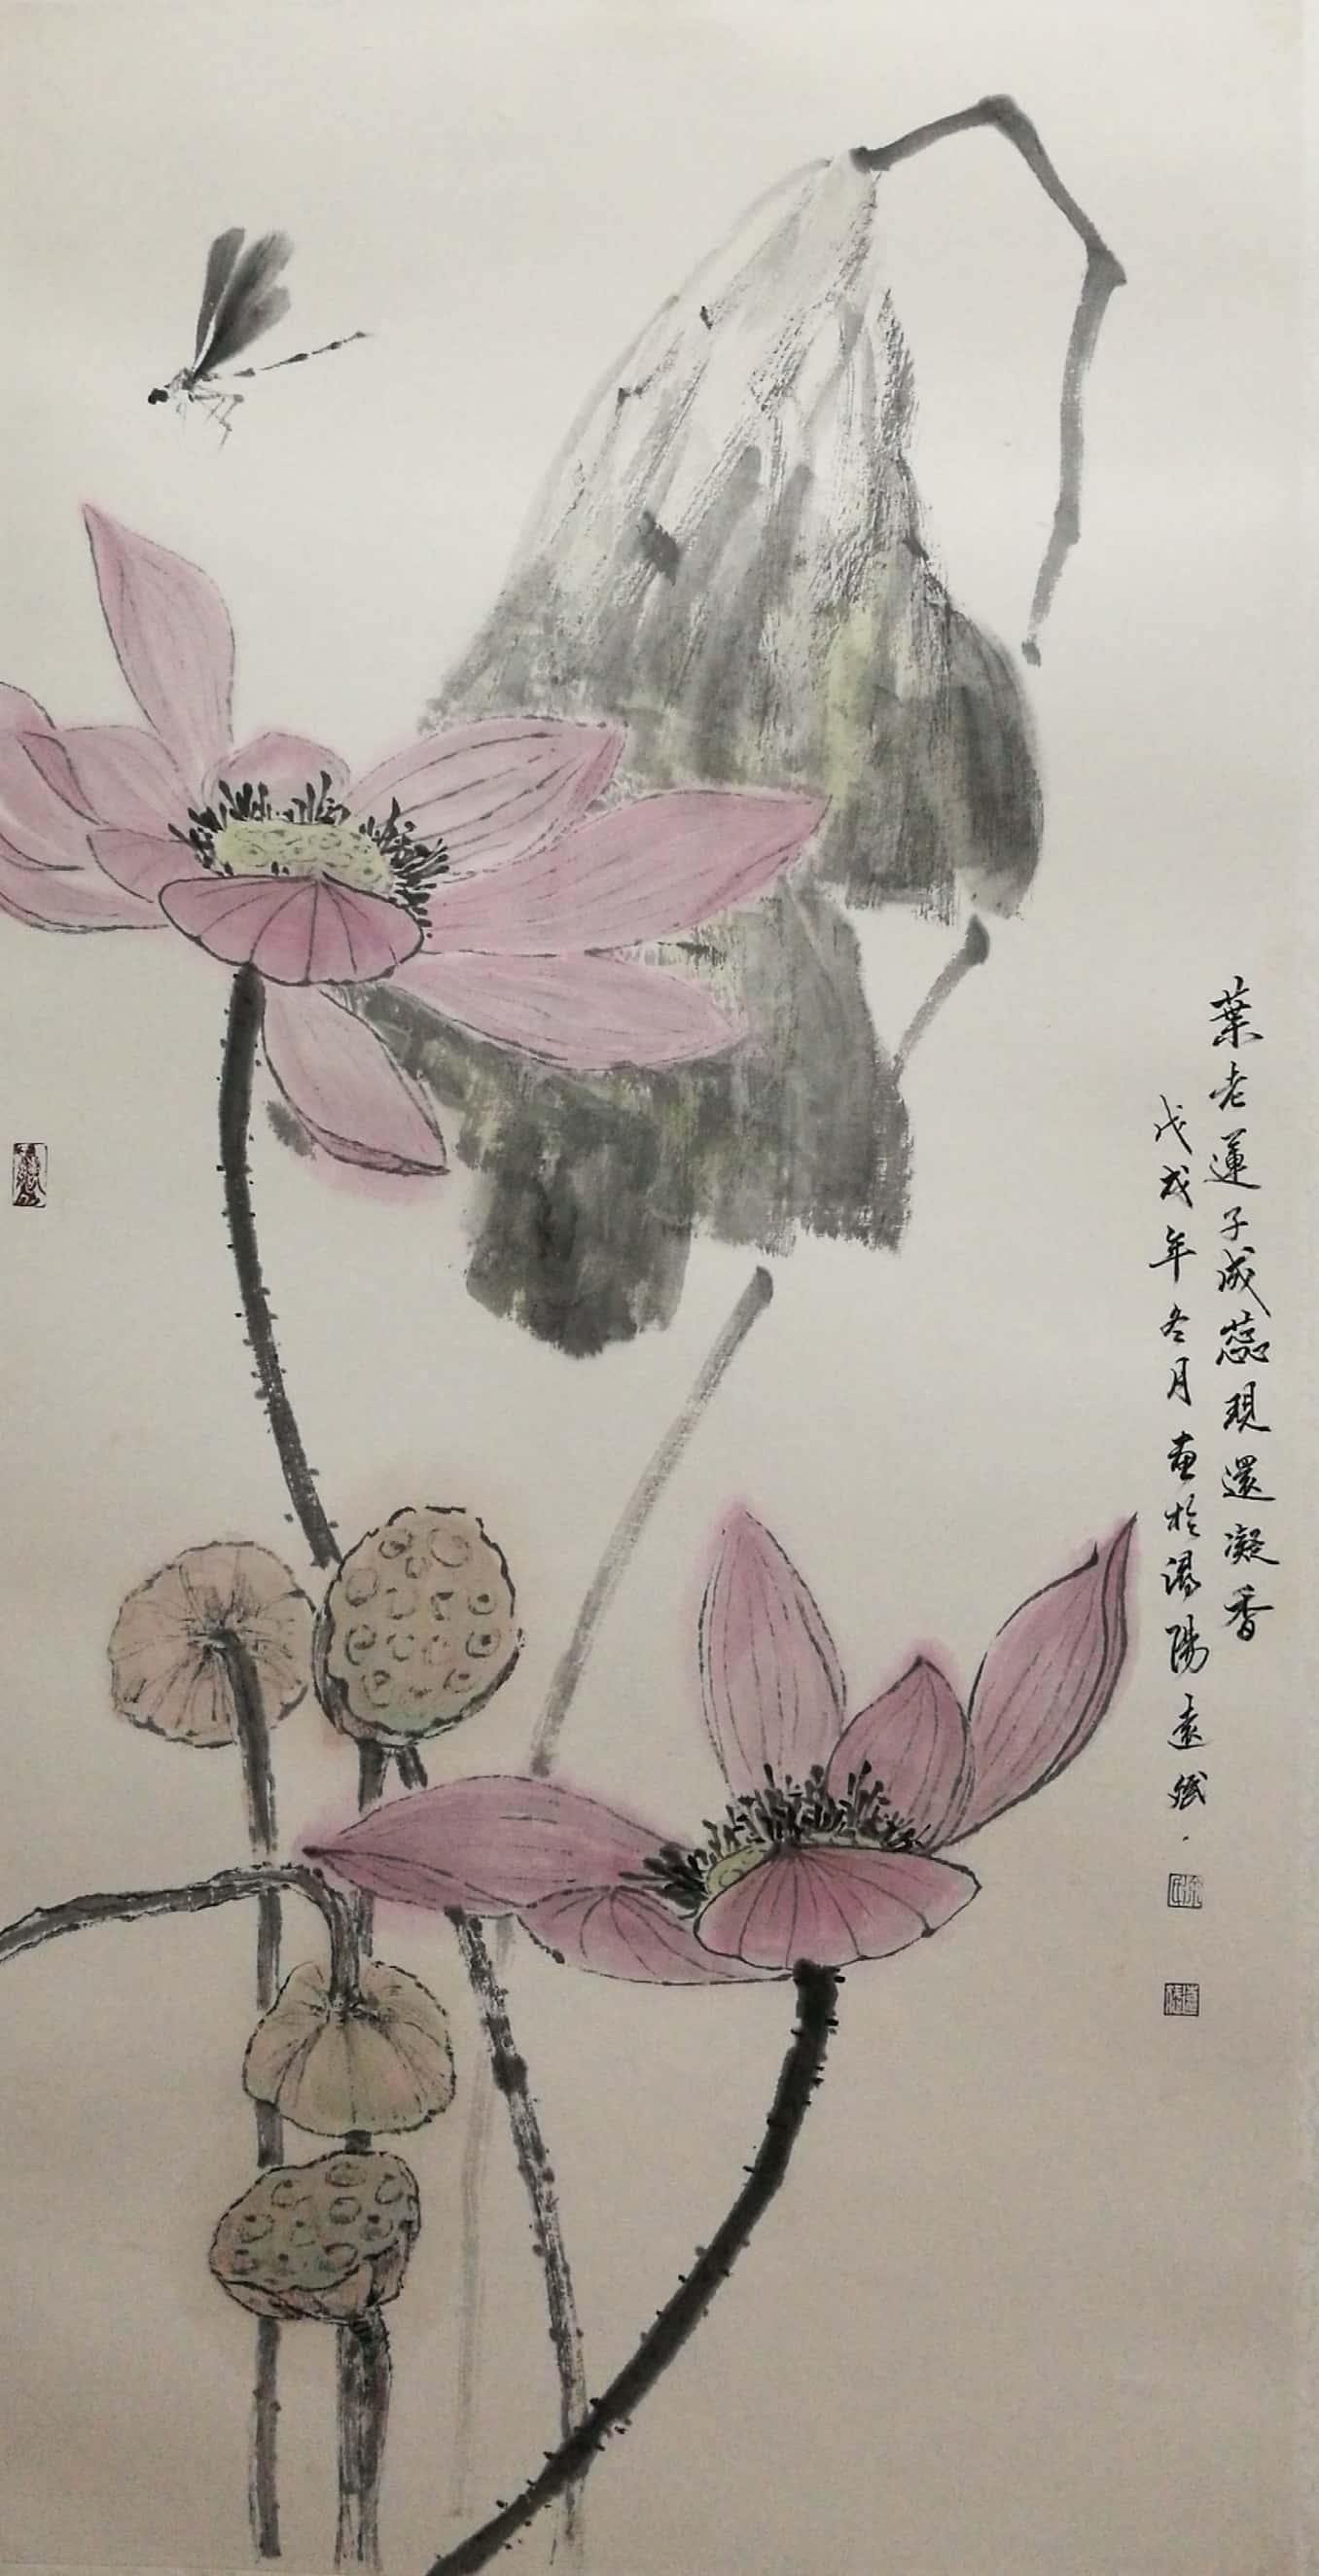 葉老蓮子成蕊現還凝香
戊戌年冬月畫於濁陽遠斌